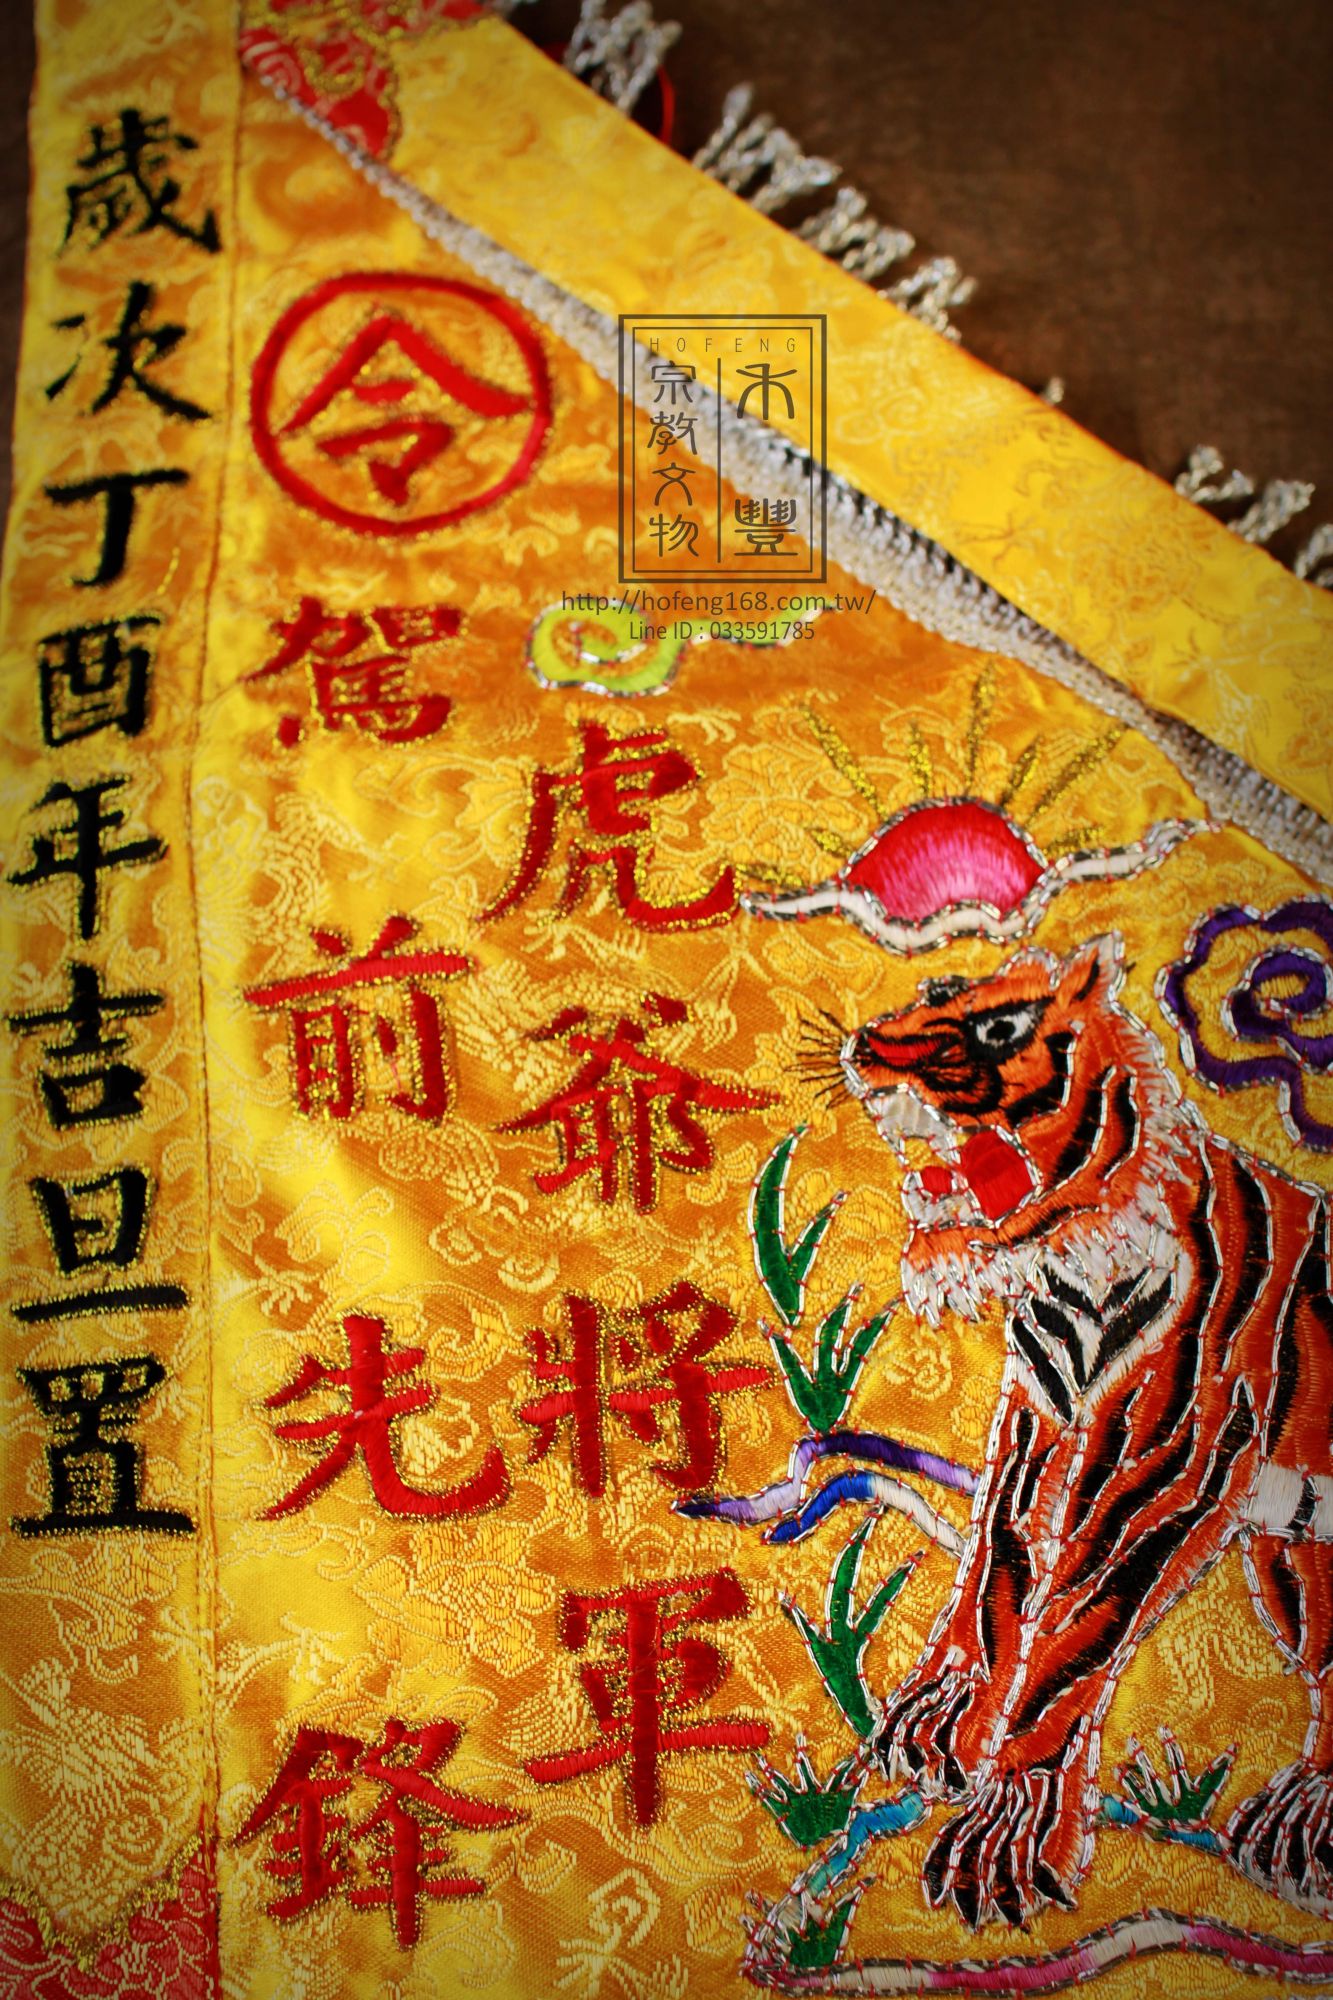 歲次丁酉年吉旦置
令
駕前先鋒
虎爺將軍
HOFENG
禾豐
宗教文物
http://hofeng168.com.tw/
Line ID : 033591785